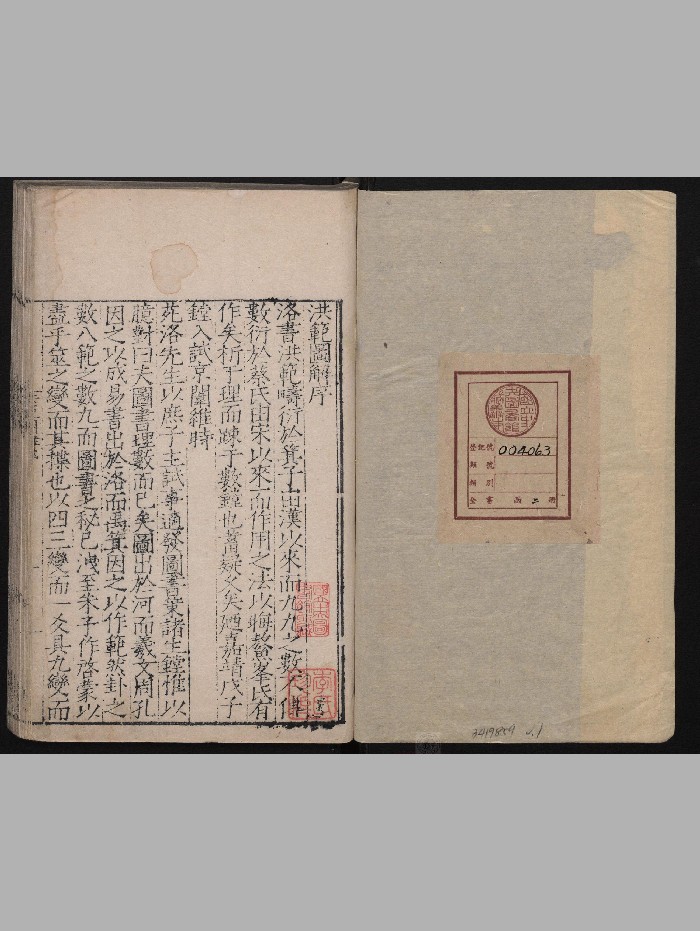 洪範圖解序
洛書洪範疇衍於箕子由漢以來而九九之數失傳
數衍於蔡氏由宋以來而作用之法以晦鰲峯氏有
作矣析于理而踈于數鐘也舊疑久矣廼嘉靖戊子
鐘入試京闈維時
苑洛先生以庶子主試事適發圖書策諸生鐘惟以
臆對曰夫圖書理數而已矣圖出於河而羲文周孔
因之以成易書出於洛而禹箕因之以作範然卦之
數八範之數九而圖書之秘已洩至朱子作啓蒙以
盡乎筮之變而其揲也以四三變而一爻具九變而
登記號 004063
類 號
類 別
全書 函 二 冊
3419859 v.1